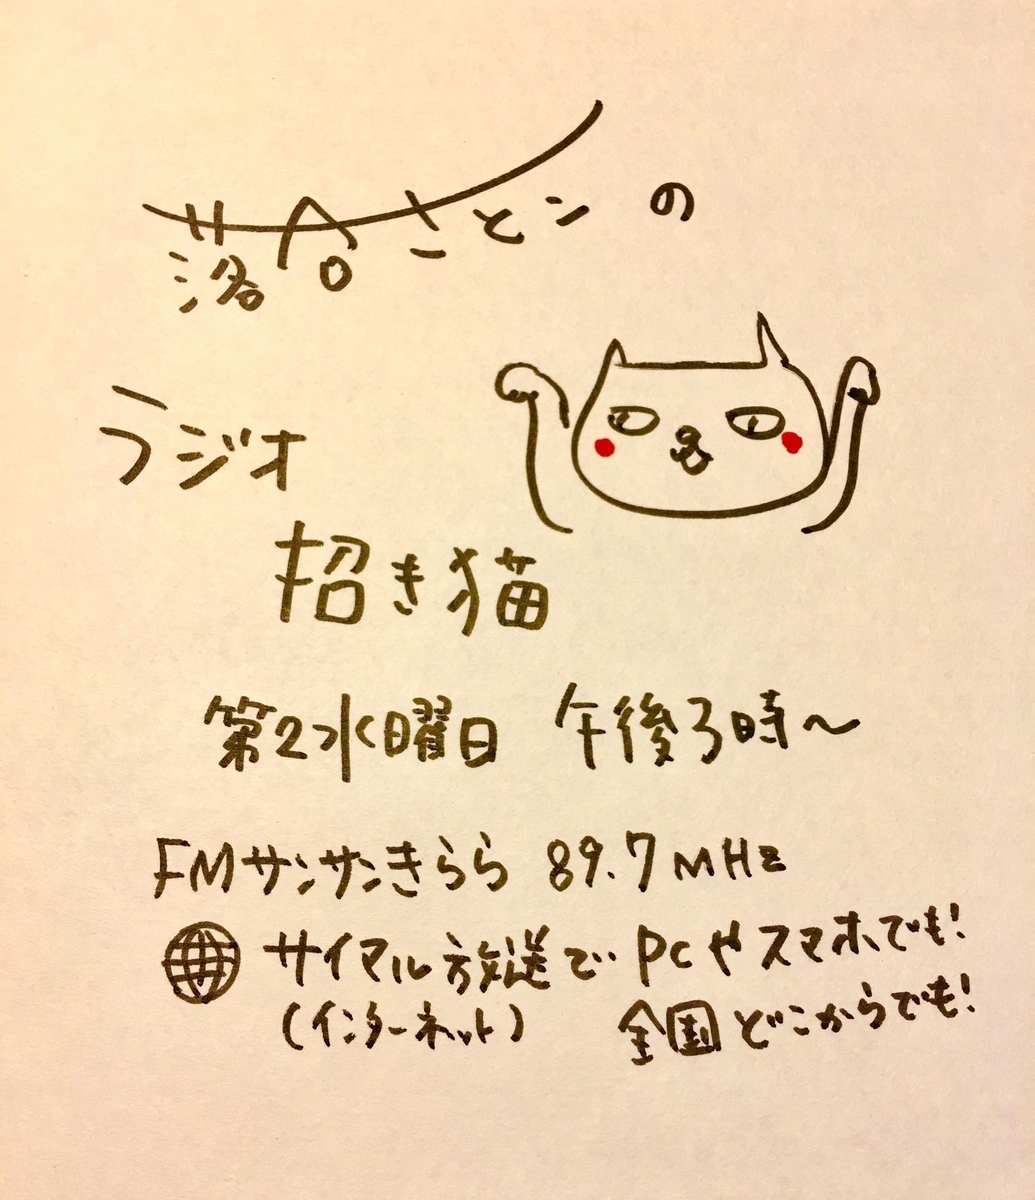 落合さとこの
ラジオ
招き猫
第2水曜日 午後3時～
FMサンサンきらら 89.7MHz
サイマル放送で PCやスマホでも!
(インターネット) 全国どこからでも!